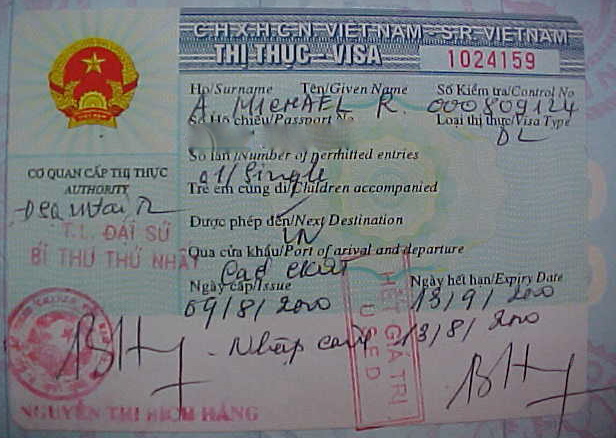 C.H.X.H.C.N VIỆT NAM - S.R. VIETNAM
THỊ THỰC - VISA
1024159
Họ/Surname Tên/Given Name
A. MICHAEL R.
Số Kiểm tra/Control No
000809124
Số Hộ chiếu/Passport No
Loại thị thực/Visa Type
DL
Số lần/Number of permitted entries
01/Single
Trẻ em cùng đi/Children accompanied
CƠ QUAN CẤP THỊ THỰC
AUTHORITY
T.L. ĐẠI SỨ
BÍ THƯ THỨ NHẤT
Được phép đến/Next Destination
VN
Qua cửa khẩu/Port of arival and departure
Ngày cấp/Issue
09/8/2000
Ngày hết hạn/Expiry Date
13/9/2000
- Nhập cảnh 13/8/2000
HẾT GIÁ TRỊ
USED
NGUYỄN THỊ BÍCH HẰNG